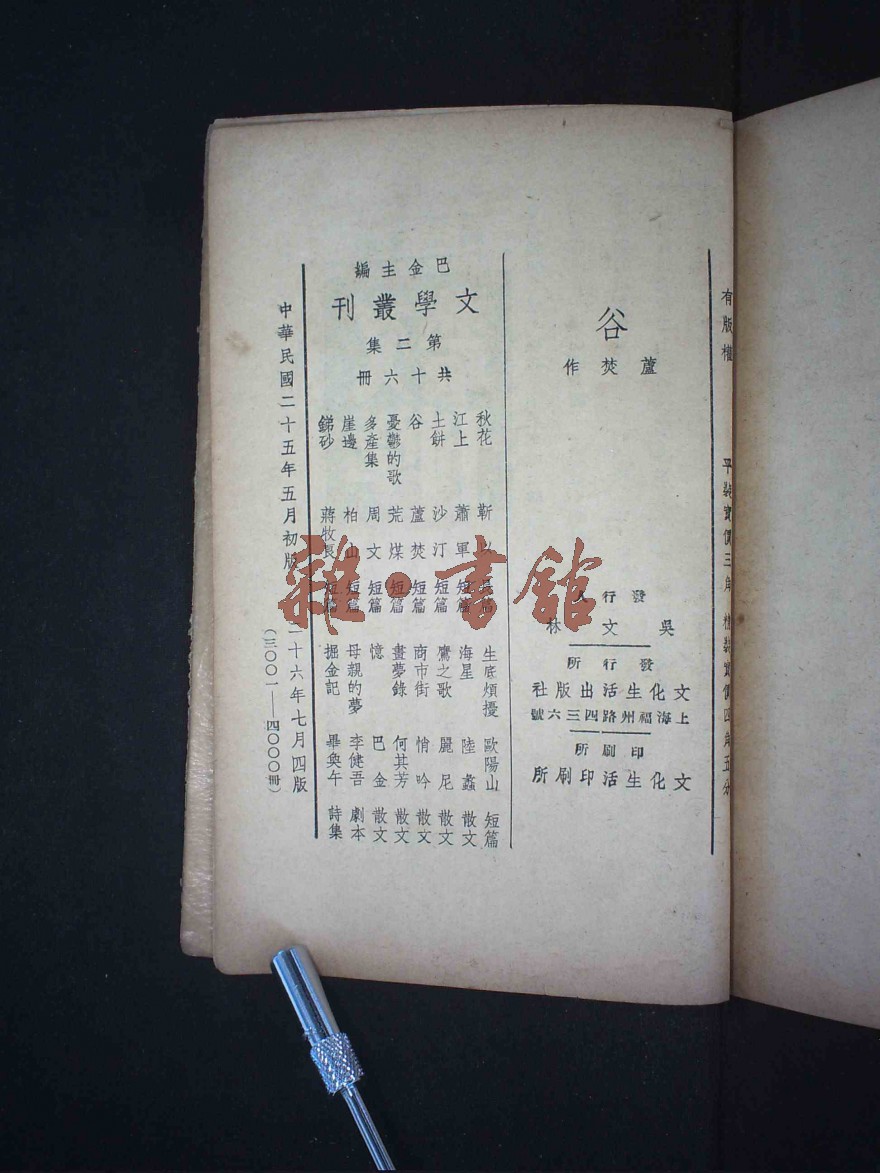 有版權
平裝實價三角 精裝實價四角五分
谷
蘆焚作
發行人
吳文林
發行所
文化生活出版社
上海福州路四三六號
印刷所
文化生活印刷所
巴金主編
文學叢刊
第二集
共十六冊
秋花 靳以 長篇
江上 蕭軍 短篇
土餅 沙汀 短篇
谷 蘆焚 短篇
憂鬱的歌 荒煤 短篇
多產集 周文 短篇
崖邊 柏山 短篇
銻砂 蔣牧良 短篇
生底煩擾 歐陽山 短篇
海星 陸蠡 散文
鷹之歌 麗尼 散文
商市街 悄吟 散文
畫夢錄 何其芳 散文
憶 巴金 散文
母親的夢 李健吾 劇本
掘金記 畢奐午 詩集
中華民國二十五年五月初版
二十六年七月四版
(三〇〇一——四〇〇〇冊)
雜·書館